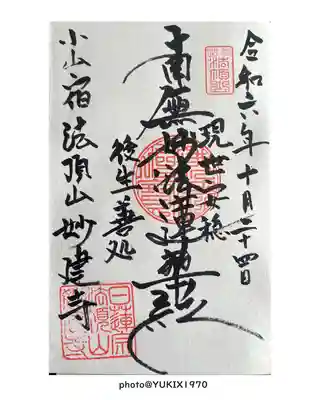 令和六年十月二十四日
現世安穏
南無妙法蓮華経
後生善処
小山宿法頂山妙建寺
日蓮宗
photo@YUKIX1970